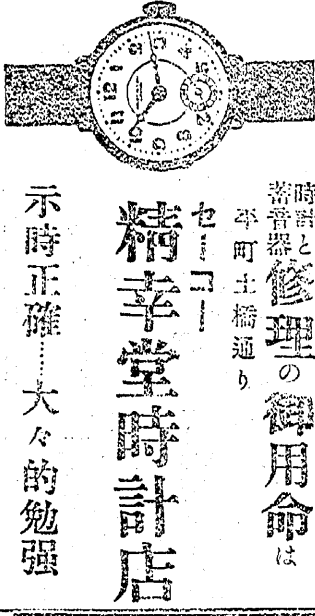 時計と
蓄音器修理の御用命は
平町土橋通り
セーコー
精幸堂時計店
示時正確……大々的勉强